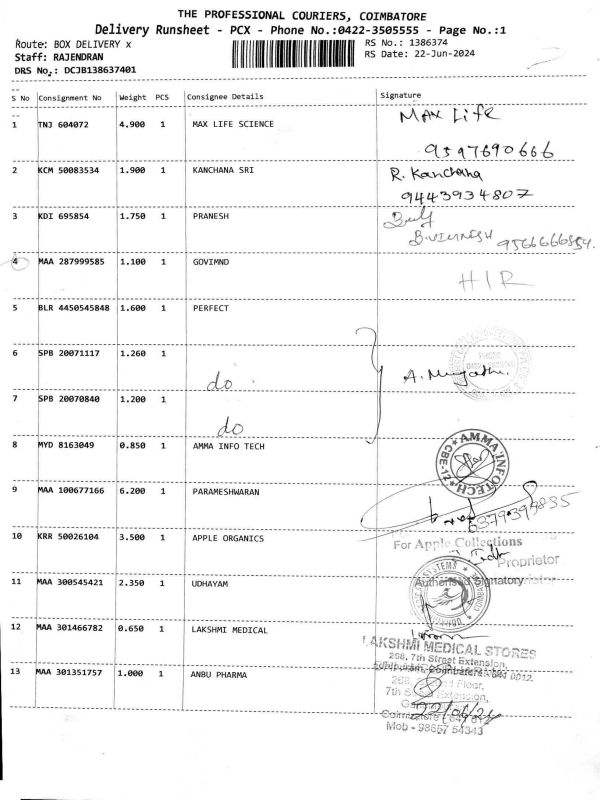 THE PROFESSIONAL COURIERS, COIMBATORE
Delivery Runsheet - PCX - Phone No.:0422-3505555 - Page No.:1
Route: BOX DELIVERY x
RS No.: 1386374
Staff: RAJENDRAN
RS Date: 22-Jun-2024
DRS No.: DCJB138637401
S No Consignment No Weight PCS Consignee Details Signature
1 TNJ 604072 4.900 1 MAX LIFE SCIENCE MAX Life
9597690666
2 KCM 50083534 1.900 1 KANCHANA SRI R. Kanchana
9443934807
3 KDI 695854 1.750 1 PRANESH
B.VIGNESH
4 MAA 287999585 1.100 1 GOVIMND H/R
5 BLR 4450545848 1.600 1 PERFECT
6 SPB 20071117 1.260 1
do
7 SPB 20070840 1.200 1
do
8 MYD 8163049 0.850 1 AMMA INFO TECH AMMA INFOTECH CBE-12
9 MAA 100677166 6.200 1 PARAMESHWARAN
6379393835
10 KRR 50026104 3.500 1 APPLE ORGANICS For Apple Collections
Proprietor
11 MAA 300545421 2.350 1 UDHAYAM Authorised Signatory
12 MAA 301466782 0.650 1 LAKSHMI MEDICAL
LAKSHMI MEDICAL STORES
268, 7th Street Extension,
13 MAA 301351757 1.000 1 ANBU PHARMA
Floor,
7th Extension,
22/06/24
Mob - 98657 54343